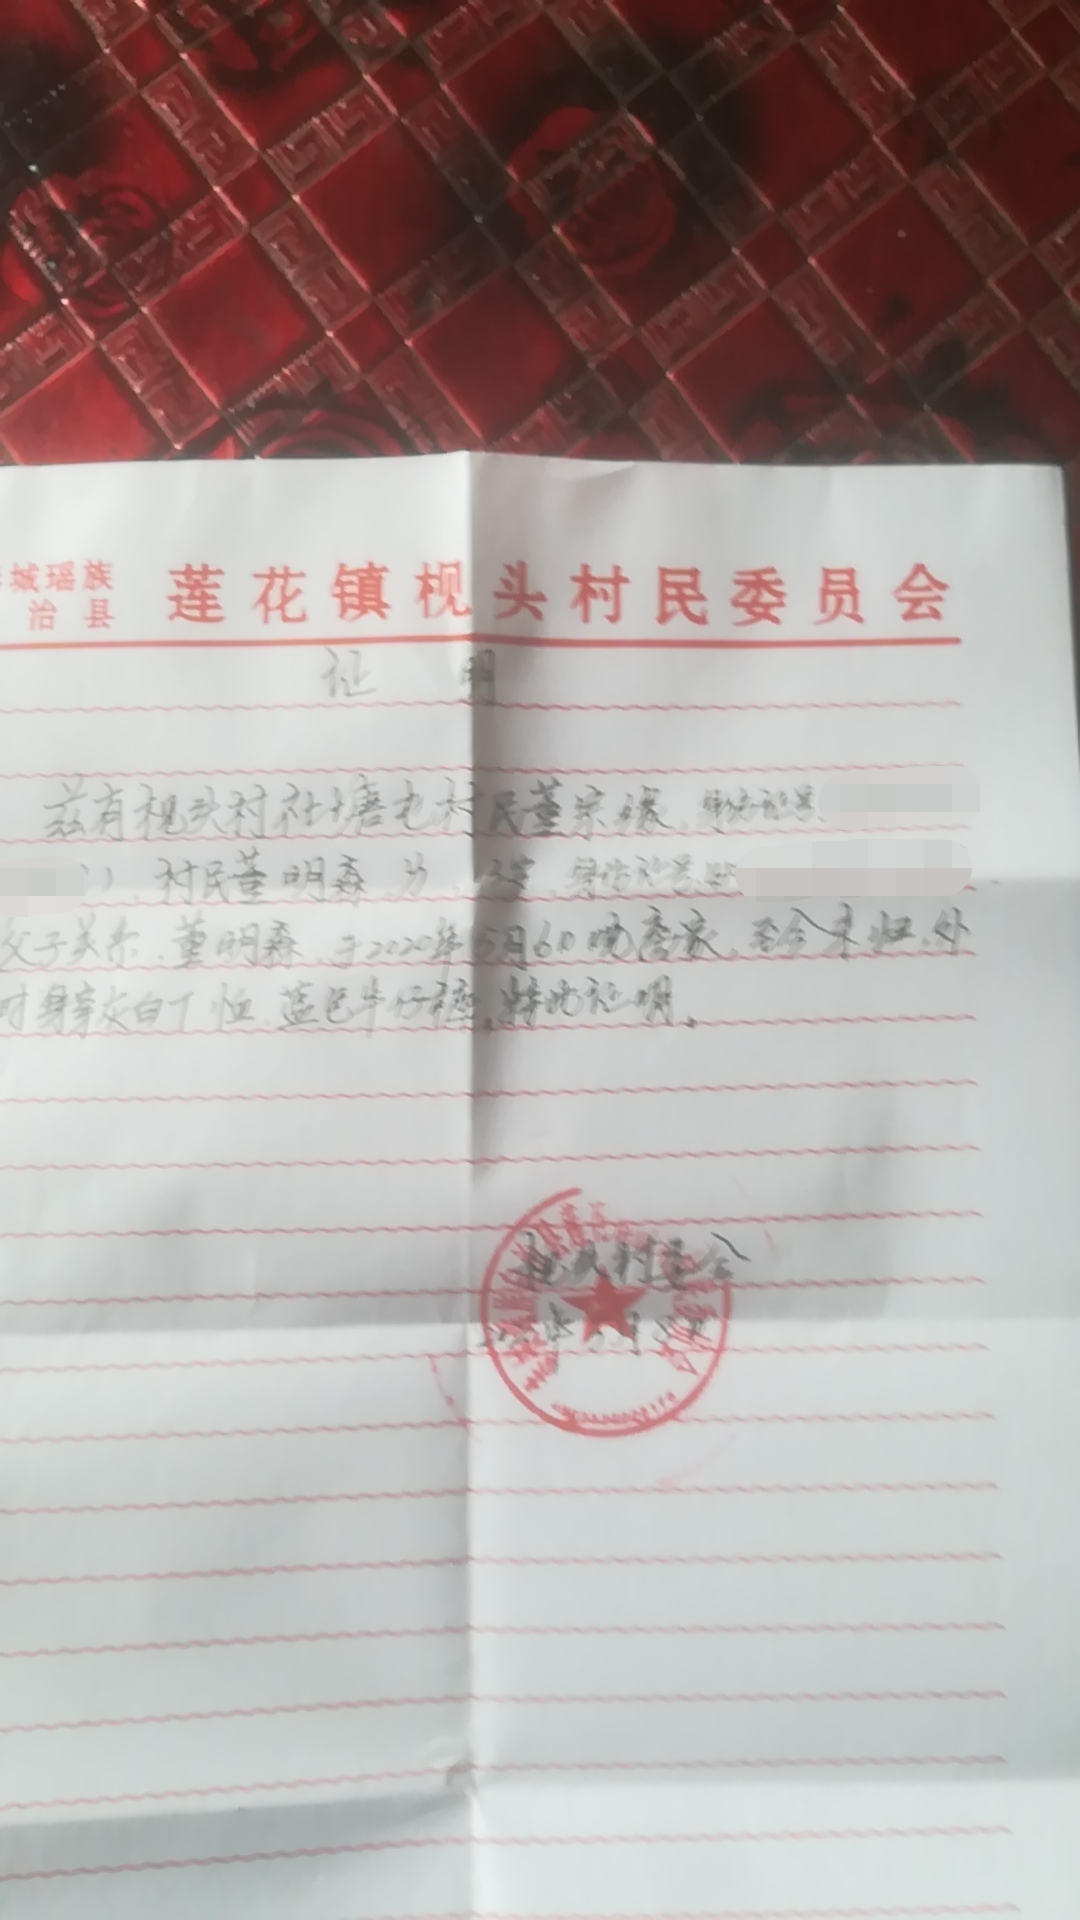 城瑶族
治县
莲花镇枧头村民委员会
证 明
兹有枧头村社塘屯村民董宗缘,身份证号
村民董明森 岁,身份证号
父子关系,董明森,于2020年5月6日晚离家,至今未归,外
时身穿灰白T恤,蓝色牛仔裤,特此证明。
枧头村委会
年 月8日